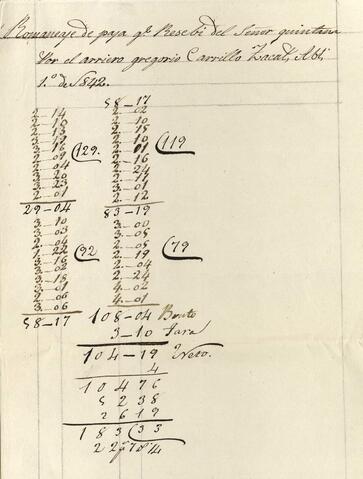 Romaneaje de paja qe. Resebi del Señor quintana
Por el arriero gregorio Carrillo Zacal, Abl,
1.º de 1842.
58-17
2-14 2-02
2-10 2-10
2-13 2-15
2-10
3-16 2-01
129. 119
2-09 2-16
2-04 2-24
3-20 2-11
3-23 3-01
2-01 2-12
29-04 83-19
3-10 3-00
3-03 3-05
2-04 2-05
1-22 2-19
92 79
3-16 2-04
3-02 2-24
3-18 4-02
3-01 4-01
2-06
3-06
58-17 108-04 Bruto
3-10 Tara
104-19 Neto.
4
10476
5238
2619
183 33